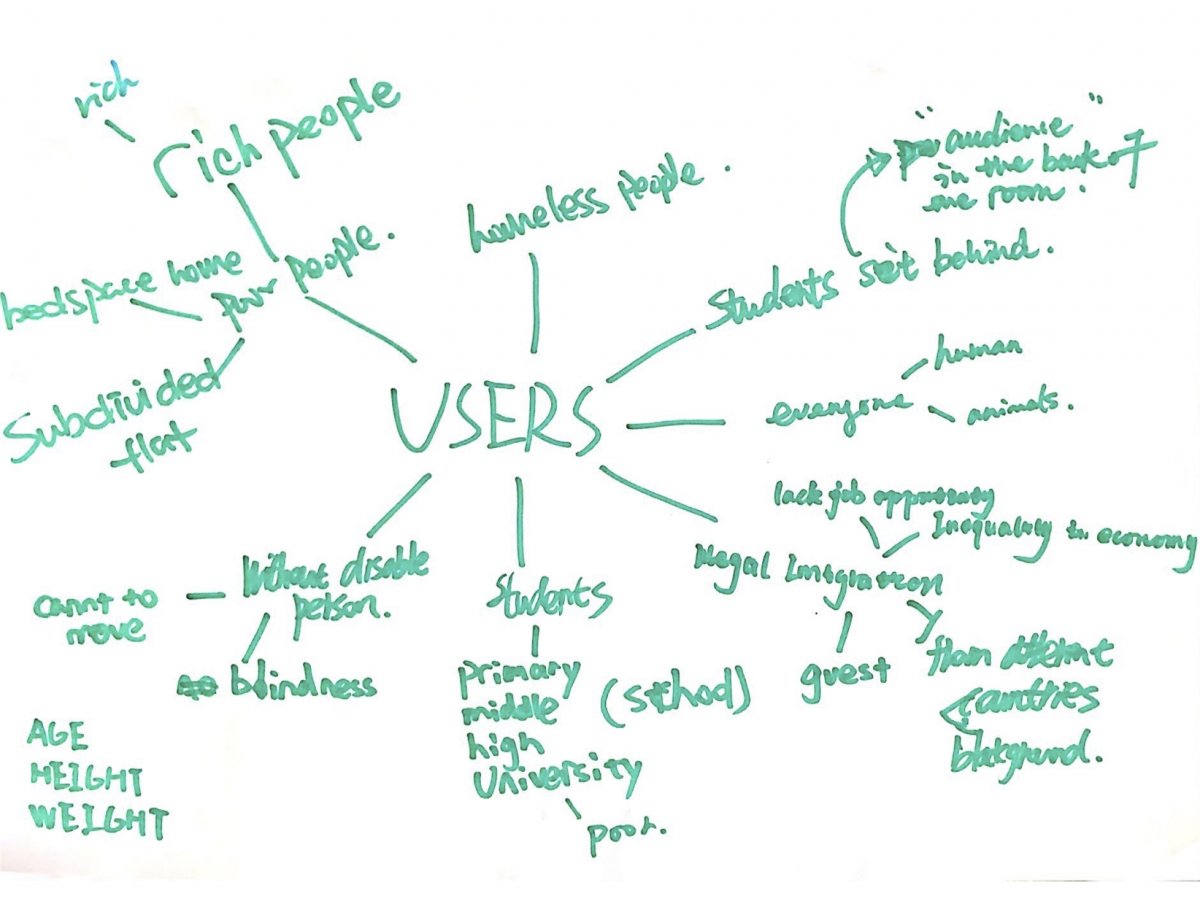 rich
rich people
homeless people.
"audience"
in the back of
the room.
poor people.
bedspace home
Subdivided
flat
Students sit behind.
USERS
everyone
human
animals.
lack job opportunity
Inequality in economy
Illegal Imigration
guest
from different
countries
background.
Without disable
person.
cannt to
move
blindness
Students
primary
middle
high
University
(sthool)
poor.
AGE
HEIGHT
WEIGHT